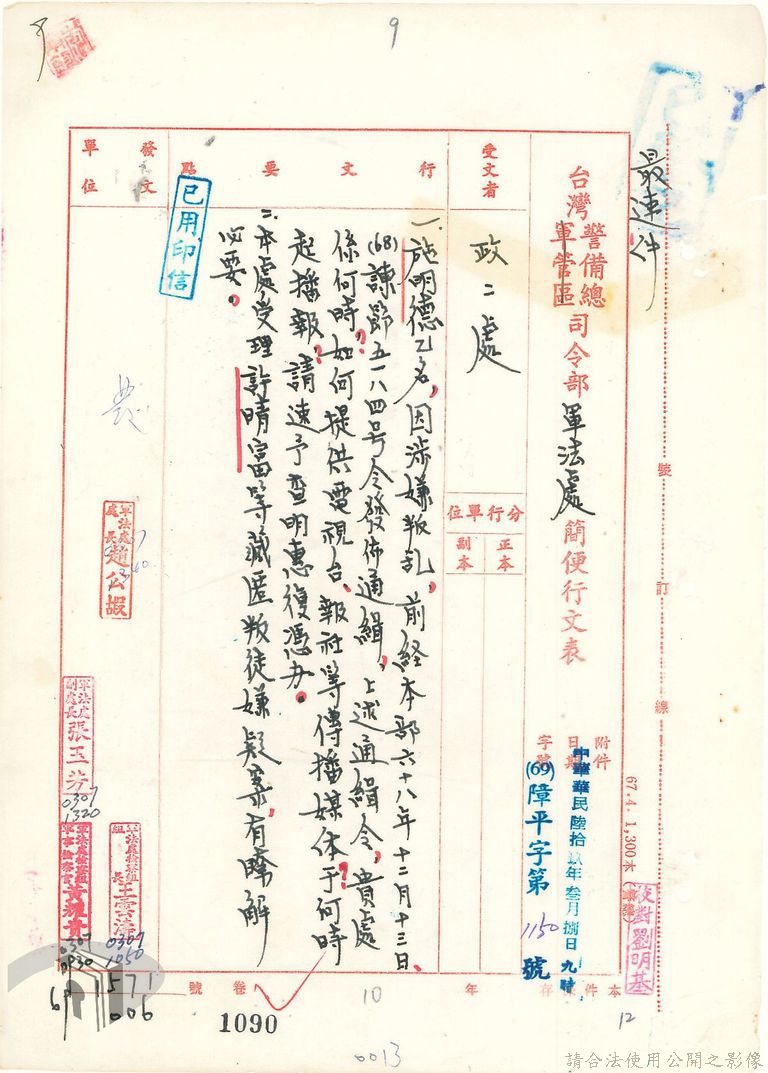 9
最速件
裝
訂
線
台灣警備總司令部
軍管區
軍法處簡便行文表
附件
日期
字號
中華民國陸拾玖年叁月捌日九時
(69)障平字第1150號
67.4.1,300本
校對劉明基
受文者
政二處
分行單位
正本
副本
行文要點
一.施明德乙名,因涉嫌叛亂,前経本部六十八年十二月十三日、
(68)諫節五一八四号令發佈通緝,上述通緝令,貴處
係何時?如何提供電視台、報社等傳播媒体?于何時
起播報,請速予查明惠復憑办。
二.本處受理許晴富等藏匿叛徒嫌疑案,有瞭解
必要。
已用印信
發文單位
軍法處處長趙公嘏
軍法處副處長張玉芳
0307
1320
軍法處檢察組組長
0307
1050
軍法處檢察組軍事檢察官黃耀貴
0307
0930
69
571
006
本件保存
年
10
卷
號
1090
12
0013
請合法使用公開之影像